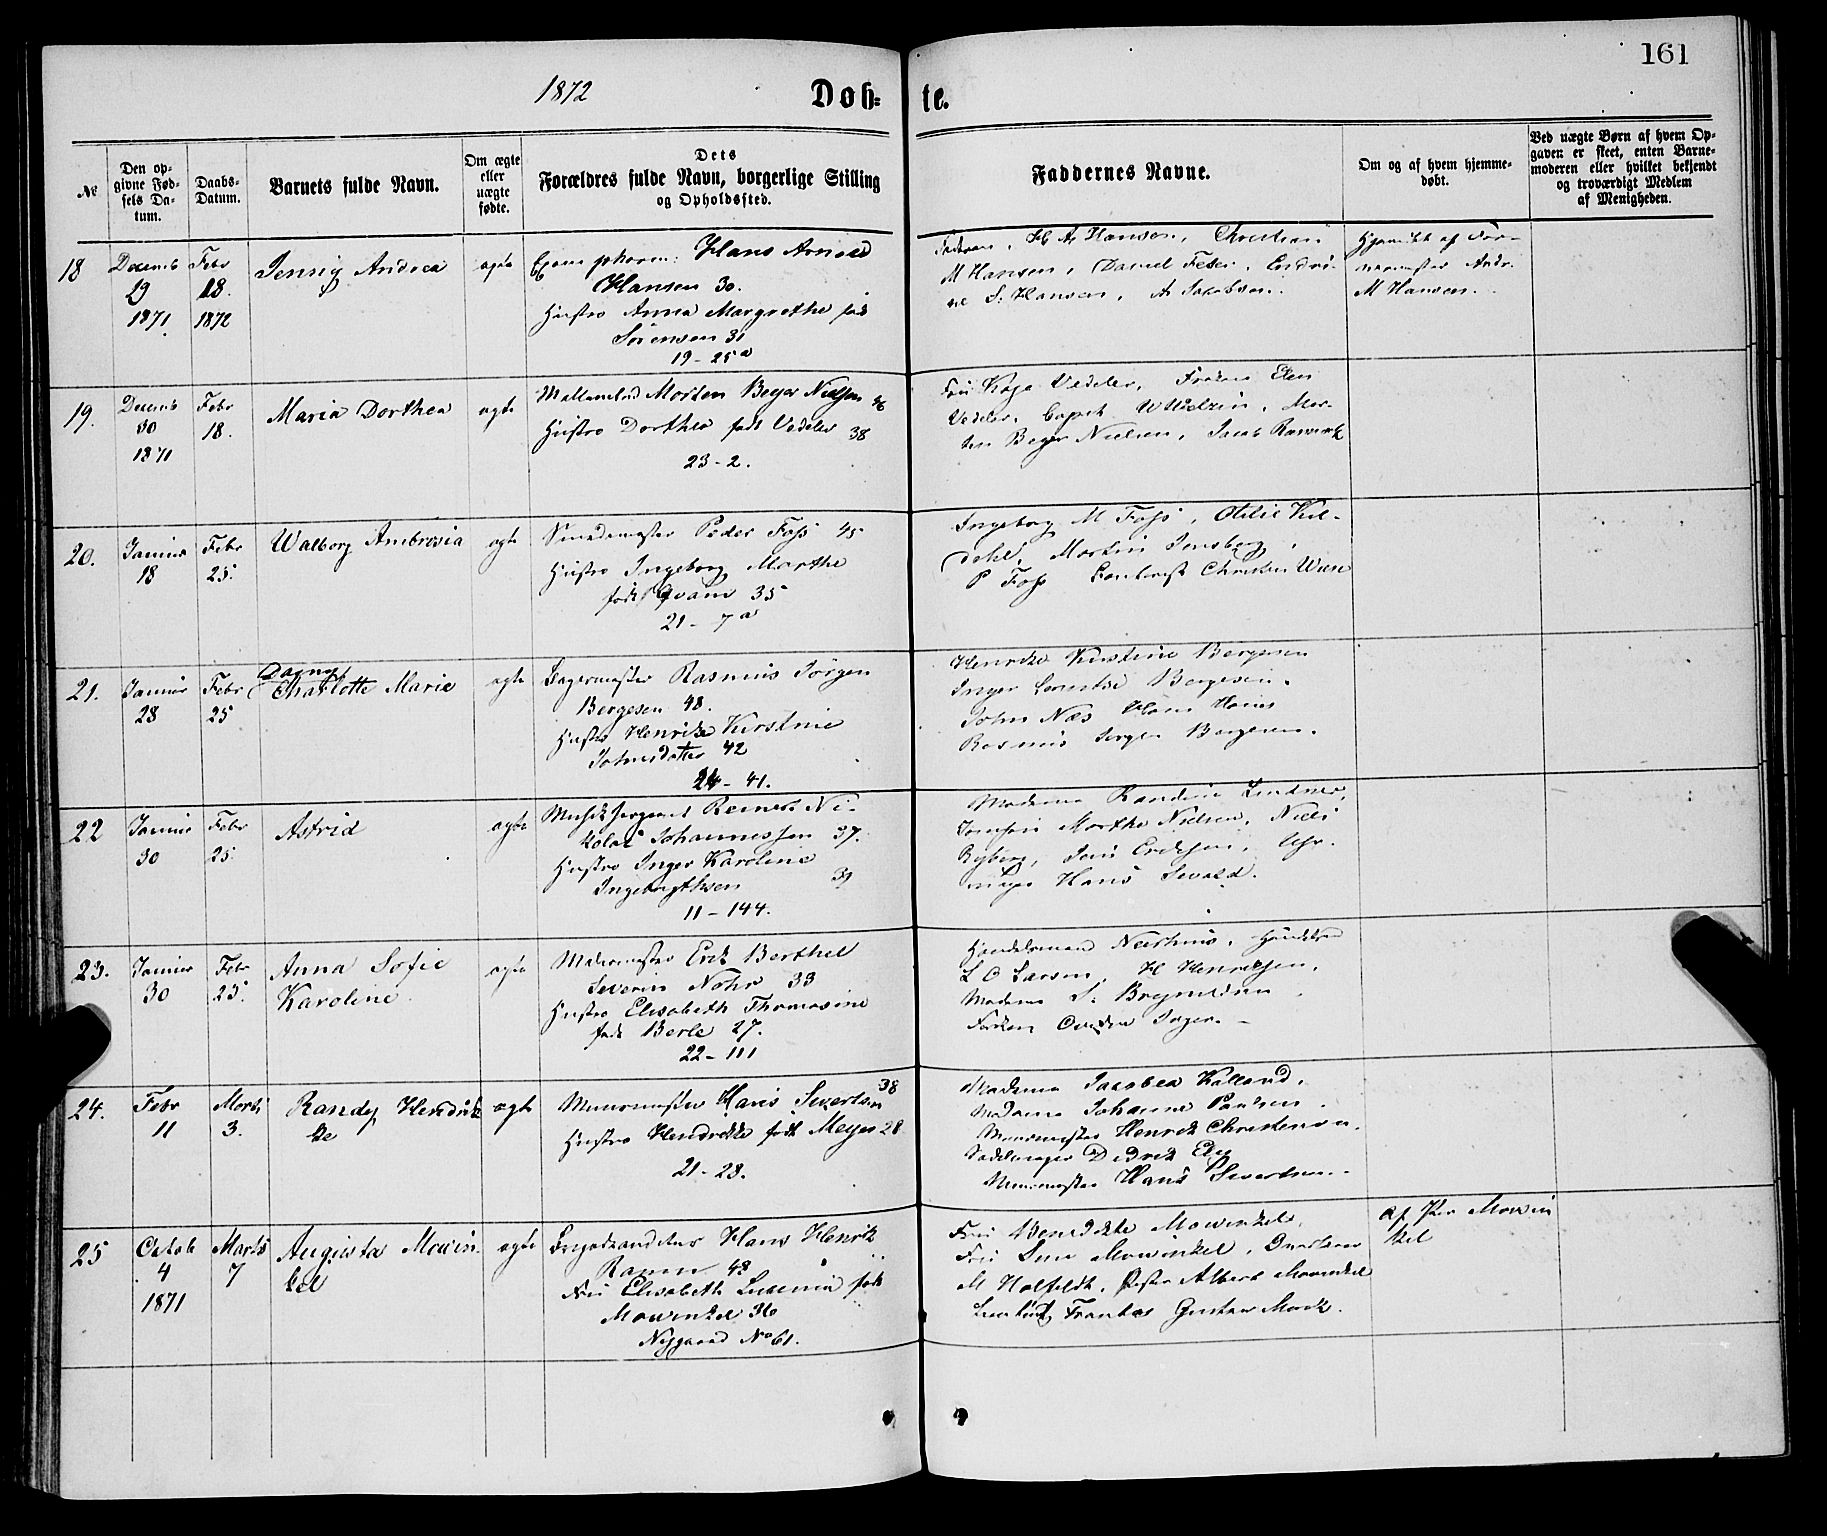 161
1872
Døb-
te.
№
Den op-
givne Fød-
sels Da-
tum.
Daabs-
Datum.
Barnets fulde Navn.
Om ægte
eller
uægte
fødte.
Dets
Forældres fulde Navn, borgerlige Stilling
og Opholdssted.
Faddernes Navne.
Om og af hvem hjemme-
døbt.
Ved uægte Børn af hvem Op-
gaven er skeet, enten Barne-
moderen eller hvilket bekjendt
og troværdigt Medlem
af Menigheden.
18
Decemb
29
1871
Febr
18.
1872
Jensig Andrea
ægte
Exam pharm: Hans Arnold
Hansen 30.
Hustro Anna Margrethe født
Sörensen 31
19 - 25a
Faderen, H A Hansen, Christian
M Hansen, Daniel
S. Hansen, A Jacobsen.
Hjemdøbt af
Andr.
M Hansen.
19.
Decemb
30
1871
Febr
18.
Maria Dorthea
ægte
Morten Beyer Nielsen 46
Hustro Dorthea født Vedeler 38
23 - 2.
Fru Kaja Vedeler, Frøken Elen
Vedeler, Capt. Mor-
ten Beyer Nielsen, Jacob
20.
Januar
18
Febr
25.
Walborg Ambrosia
ægte
Smedemester Peder Foss 45
Hustro Ingeborg Marthe
født Qvam 35
21 - 7a
Ingeborg M Foss, Otilie Kil-
dahl, Martin Jensberg,
P Foss Christen Wiese
21.
Januar
28
Febr
25
Dagny
Charlotte Marie
ægte
Bagermester Rasmus Jörgen
Bergesen 48.
Hustro Henrikke Kirstine
Johnsdotter 42
24 - 41.
Henrikke Kirstine Bergesen
Inger Bergesen.
John Næs Hans
Rasmus Jörgen Bergesen.
22
Januar
30
Febr
25.
Astrid
ægte
Musiksergeant Reinert Ni-
kolai Johannessen 37.
Hustro Inger Karoline
Ingebrigthsen 31
11 - 144.
Madame Randine Lindner,
Jomfru Marthe Nielsen, Niels
Ryberg, Jens Eriksen, Uhr-
mager Hans Sevald.
23.
Januar
30
Febr
25.
Anna Sofie
Karoline
ægte
Malermester Erik Berthel
Severin Nohr 33
Hustro Elisabeth Thomasine
født Berle 27.
22 - 111
Handelsmand
L O Larsen, H Henriksen,
Madame S.
Frøken
24.
Febr
11
Marts
3.
Randy Hendrik
ke
ægte
Muurmester Hans Sivertsen 38
Hustro Hendrikke født Meyer 28
21 - 28.
Madame Jacobea Kalland,
Madame Johanne Paulsen.
Muurmester Henrik Christensen,
Sadelmager Didrik Eley
Muurmester Hans Sivertsen.
25
Octob
4
1871
Marts
7
Augusta Mowin
kel
ægte
Brigadeauditør Hans Henrik
48
Fru Elisabeth født
Mowinkel 36
Nygaard No 61.
Fru Benedikte Mowinkel,
Fru Mowinkel,
M Holfeldt, Albert Mowinkel
Gustav Monk.
af Mowin
kel